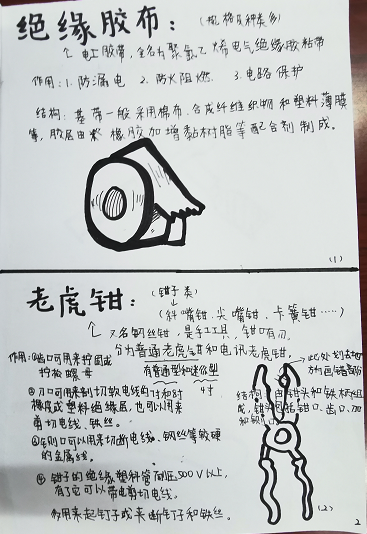 绝缘胶布：（规格及种类多）
↳ 电工胶带，全名为聚氯乙烯电气绝缘胶粘带
作用：1.防漏电 2.防火阻燃 3.电路保护
结构：基带一般采用棉布、合成纤维织物和塑料薄膜
等，胶层由 橡胶加增黏树脂等配合剂制成。
(1)
老虎钳：（钳子类）
（斜嘴钳、尖嘴钳、卡簧钳……）
又名钢丝钳，是手工具，钳口有刃。
分为普通老虎钳和电讯老虎钳，
作用：①齿口可用来拧
拧松螺母
有普通型和迷你型
②刀口可用来剖切软电线的
橡皮或塑料绝缘层，也可以用来
剪切电线、铁丝。
4寸
③铡口可以用来切断电线、钢丝等较硬
的金属线。
④钳子的绝缘塑料管耐压500V以上，
有了它可以带电剪切电线。
多用来起钉子或夹断钉子和铁丝。
结构：由钳头和钳柄组
成，钳头包括钳口、齿、刀
(2)
2